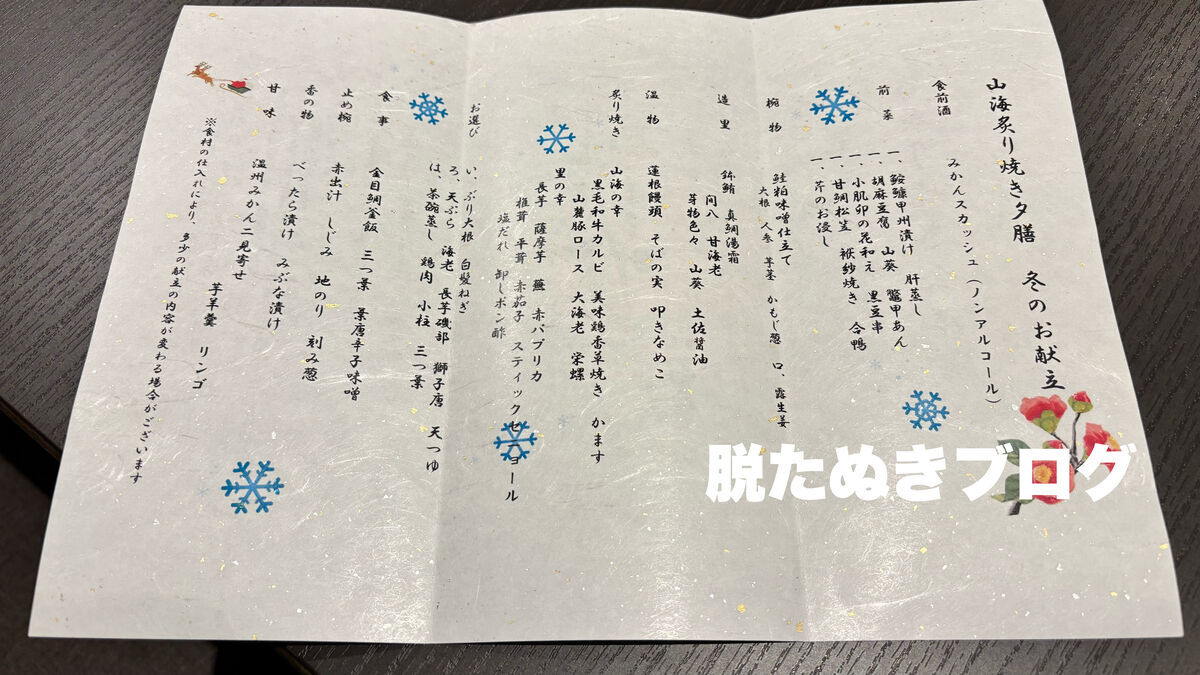 山海炙り焼き夕膳　冬のお献立
食前酒　みかんスカッシュ（ノンアルコール）
前菜　一、鮟鱇甲州漬け　肝蒸し
一、胡麻豆腐　山葵　鼈甲あん
一、小肌卯の花和え　黒豆串
一、甘鯛松笠　袱紗焼き　合鴨
一、芹のお浸し
椀物　鮭粕味噌仕立て
大根　人参　芋茎　かもじ葱　口、露生姜
造里　鉾鮪　真鯛湯霜
間八　甘海老
芽物色々　山葵　土佐醤油
温物　蓮根饅頭　そばの実　叩きなめこ
炙り焼き　山海の幸
黒毛和牛カルビ　美味鶏香草焼き　かます
山麓豚ロース　大海老　栄螺
里の幸
長芋　薩摩芋　蕪　赤パプリカ
椎茸　平茸　赤茄子　スティックセニョール
塩だれ　卸しポン酢
お選び　い、ぶり大根　白髪ねぎ
ろ、天ぷら　海老　長芋磯部　獅子唐　天つゆ
は、茶碗蒸し　鶏肉　小柱　三つ葉
食事　金目鯛釜飯　三つ葉　葉唐辛子味噌
止め椀　赤出汁　しじみ　地のり　刻み葱
香の物　べったら漬け　みぶな漬け
甘味　温州みかん二見寄せ
芋羊羹　リンゴ
※食材の仕入れにより、多少の献立の内容が変わる場合がございます
脱たぬきブログ